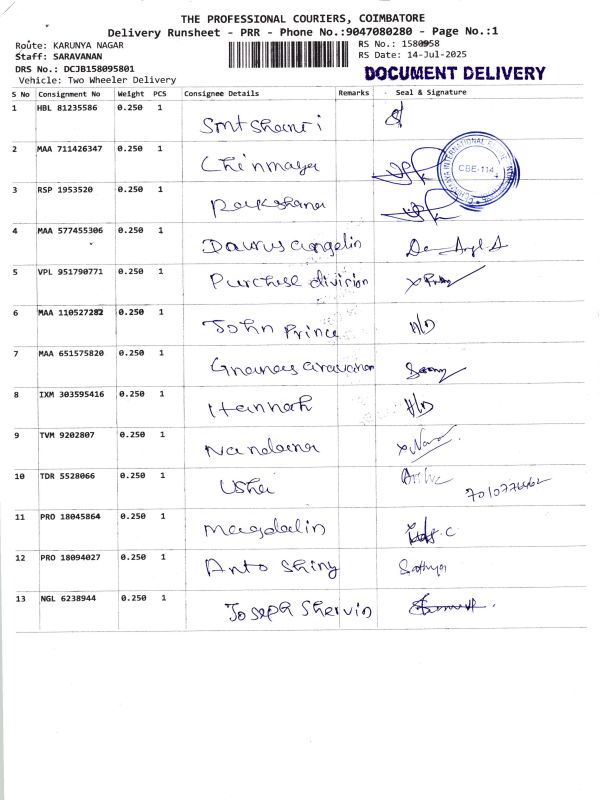 THE PROFESSIONAL COURIERS, COIMBATORE
Delivery Runsheet - PRR - Phone No.:9047080280 - Page No.:1
Route: KARUNYA NAGAR
RS No.: 1580958
Staff: SARAVANAN
RS Date: 14-Jul-2025
DRS No.: DCJB158095801
DOCUMENT DELIVERY
Vehicle: Two Wheeler Delivery
S No Consignment No Weight PCS Consignee Details Remarks Seal & Signature
1 HBL 81235586 0.250 1 Smt Shanri
2 MAA 711426347 0.250 1 Chinmaya
CBE-114
3 RSP 1953520 0.250 1
4 MAA 577455306 0.250 1
5 VPL 951790771 0.250 1 Purchese division
6 MAA 110527282 0.250 1 John Prince
7 MAA 651575820 0.250 1
8 IXM 303595416 0.250 1 Hannah
9 TVM 9202807 0.250 1 Nandana
10 TDR 5528066 0.250 1 Usha
11 PRO 18045864 0.250 1 Magdalin
12 PRO 18094027 0.250 1 Anto Shiny Sathya
13 NGL 6238944 0.250 1 Joseph Shervin